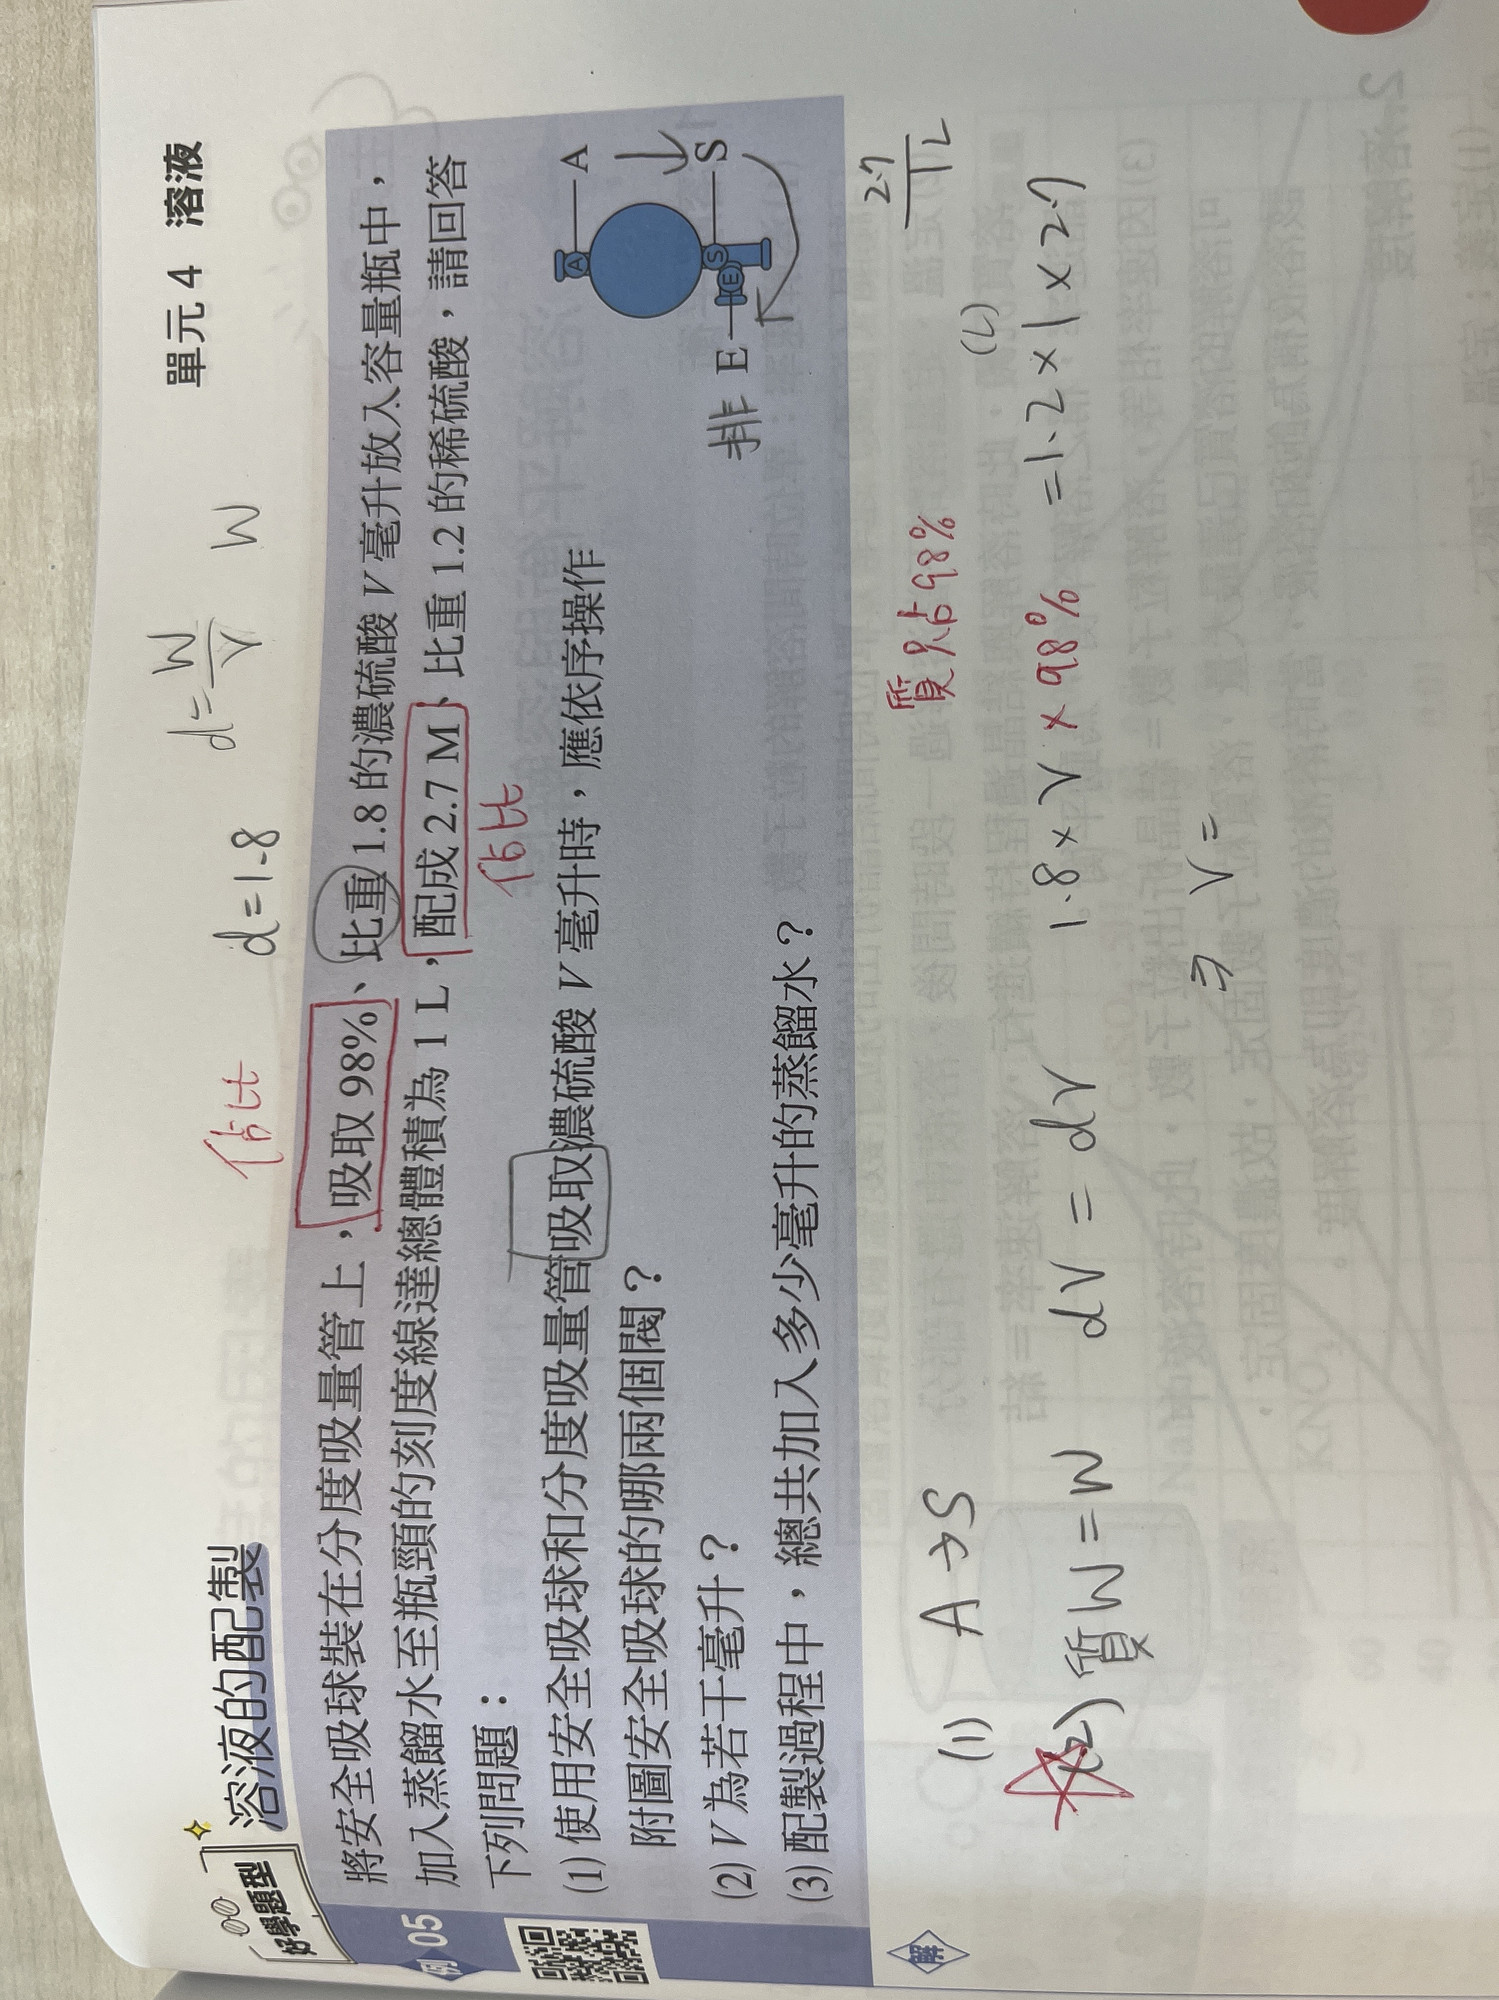 單元 4 溶液
好學題型
溶液的配製
佔比
d=1.8
d=W/V
W
例 05
將安全吸球裝在分度吸量管上，吸取 98%、比重 1.8 的濃硫酸 V 毫升放入容量瓶中，
加入蒸餾水至瓶頸的刻度線達總體積為 1 L，配成 2.7 M、比重 1.2 的稀硫酸，請回答
下列問題：
佔比
(1) 使用安全吸球和分度吸量管吸取濃硫酸 V 毫升時，應依序操作
附圖安全吸球的哪兩個閥？
(2) V 為若干毫升？
(3) 配製過程中，總共加入多少毫升的蒸餾水？
A
A
S
S
E
排 E
解
(1) A→S
質只佔98%
2.7/1L
(2) 質W=W
dV=dV
1.8×V×98%
=1.2×1×2.7
(L)
⇒ V=